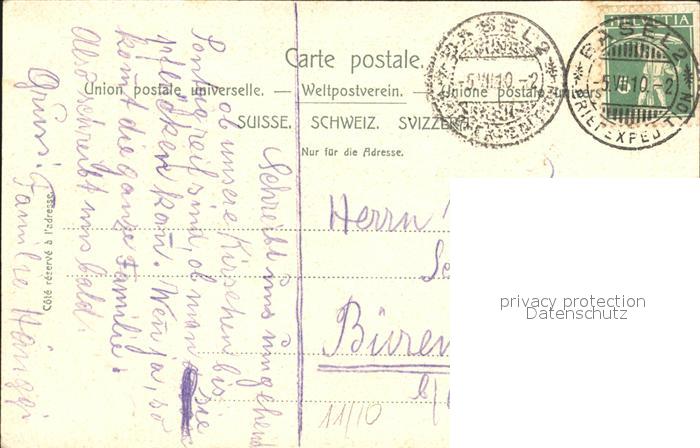 Carte postale.
Union postale universelle. — Weltpostverein. — Unione postale univers
SUISSE. SCHWEIZ. SVIZZERA.
Nur für die Adresse.
Côté réservé à l'adresse.
HELVETIA
BASEL 2
-5.VII.10.-2
BRIEFEXPEDITION
BASEL 2
-5.VII.10.-2
BRIEFEXPEDITION
Schreibt uns umgehend
ob unsere Kirschen bis
Sontig reif sind, ob man sie
pflücken kan̄. Wen̄ ja, so
kom̄t die ganze Familie.
Also schreibt uns bald.
Gruss
Familie Hänggi
Herrn
Büren
11/10
privacy protection
Datenschutz